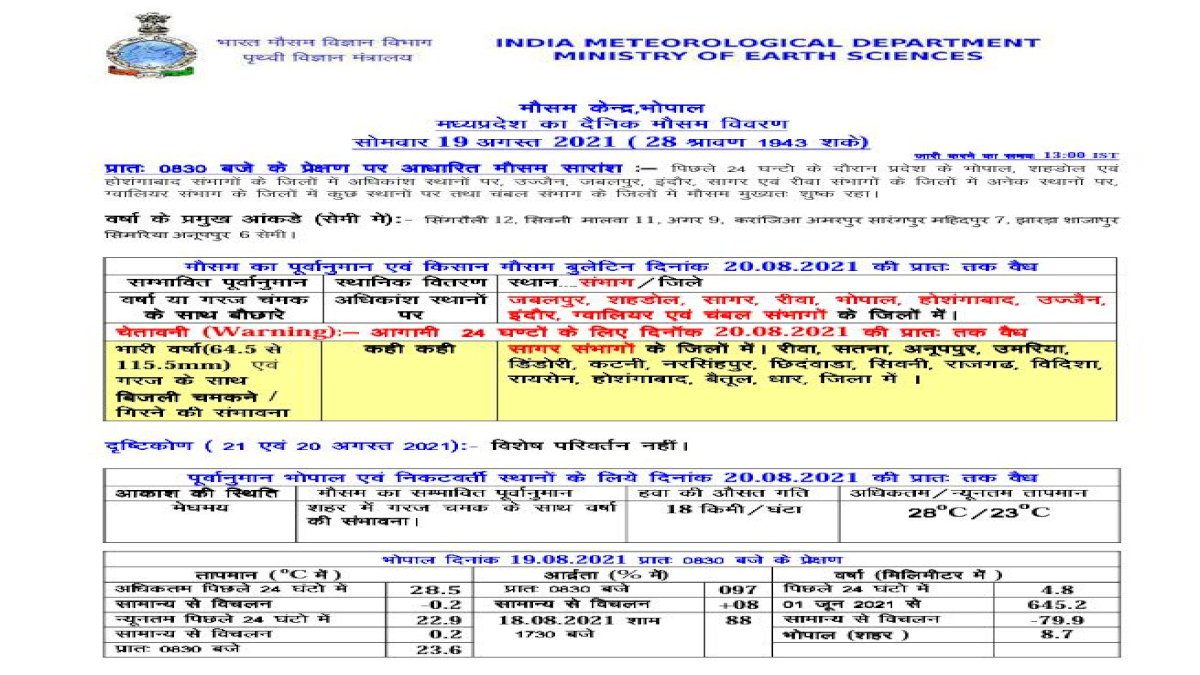 भारत मौसम विज्ञान विभाग
पृथ्वी विज्ञान मंत्रालय
INDIA METEOROLOGICAL DEPARTMENT
MINISTRY OF EARTH SCIENCES
मौसम केन्द्र,भोपाल
मध्यप्रदेश का दैनिक मौसम विवरण
सोमवार 19 अगस्त 2021 ( 28 श्रावण 1943 शके)
जारी करने का समय 13:00 IST
प्रातः 0830 बजे के प्रेक्षण पर आधारित मौसम सारांश :— पिछले 24 घन्टो के दौरान प्रदेश के भोपाल, शहडोल एवं
होशंगाबाद संभागों के जिलों में अधिकांश स्थानों पर, उज्जैन, जबलपुर, इंदौर, सागर एवं रीवा संभागों के जिलों में अनेक स्थानों पर,
ग्वालियर संभाग के जिलों में कुछ स्थानों पर तथा चंबल संभाग के जिलों में मौसम मुख्यतः शुष्क रहा।
वर्षा के प्रमुख आंकडे (सेमी में):- सिंगरौली 12, सिवनी मालवा 11, अगर 9, करांजिआ अमरपुर सारंगपुर महिदपुर 7, झारड़ा शाजापुर
सिमरिया अनूपपुर 6 सेमी।
मौसम का पूर्वानुमान एवं किसान मौसम बुलेटिन दिनांक 20.08.2021 की प्रातः तक वैध
सम्भावित पूर्वानुमान स्थानिक वितरण स्थान...संभाग/जिले
वर्षा या गरज चंमक अधिकांश स्थानों जबलपुर, शहडोल, सागर, रीवा, भोपाल, होशंगाबाद, उज्जैन,
के साथ बौछारे पर इंदौर, ग्वालियर एवं चंबल संभागों के जिलों में।
चेतावनी (Warning):— आगामी 24 घण्टों के लिए दिनॉक 20.08.2021 की प्रातः तक वैध
भारी वर्षा(64.5 से कही कही सागर संभागों के जिलों में। रीवा, सतना, अनूपपुर, उमरिया,
115.5mm) एवं डिंडोरी, कटनी, नरसिंहपुर, छिदंवाडा, सिवनी, राजगढ, विदिशा,
गरज के साथ रायसेन, होशंगाबाद, बैतूल, धार, जिला में ।
बिजली चमकने /
गिरने की संभावना
दृष्टिकोण ( 21 एवं 20 अगस्त 2021):- विशेष परिवर्तन नहीं।
पूर्वानुमान भोपाल एवं निकटवर्ती स्थानों के लिये दिनांक 20.08.2021 की प्रातः तक वैध
आकाश की स्थिति मौसम का सम्भावित पूर्वानुमान हवा की औसत गति अधिकतम/न्यूनतम तापमान
मेघमय शहर में गरज चमक के साथ वर्षा 18 किमी/घंटा 28⁰C/23⁰C
की संभावना।
भोपाल दिनांक 19.08.2021 प्रातः 0830 बजे के प्रेक्षण
तापमान (⁰C में ) आर्द्रता (% में) वर्षा (मिलिमीटर में )
अधिकतम पिछले 24 घंटो में 28.5 प्रातः 0830 बजे 097 पिछले 24 घंटो में 4.8
सामान्य से विचलन -0.2 सामान्य से विचलन +08 01 जून 2021 से 645.2
न्यूनतम पिछले 24 घंटो में 22.9 18.08.2021 शाम 88 सामान्य से विचलन -79.9
सामान्य से विचलन 0.2 1730 बजे भोपाल (शहर ) 8.7
प्रातः 0830 बजे 23.6